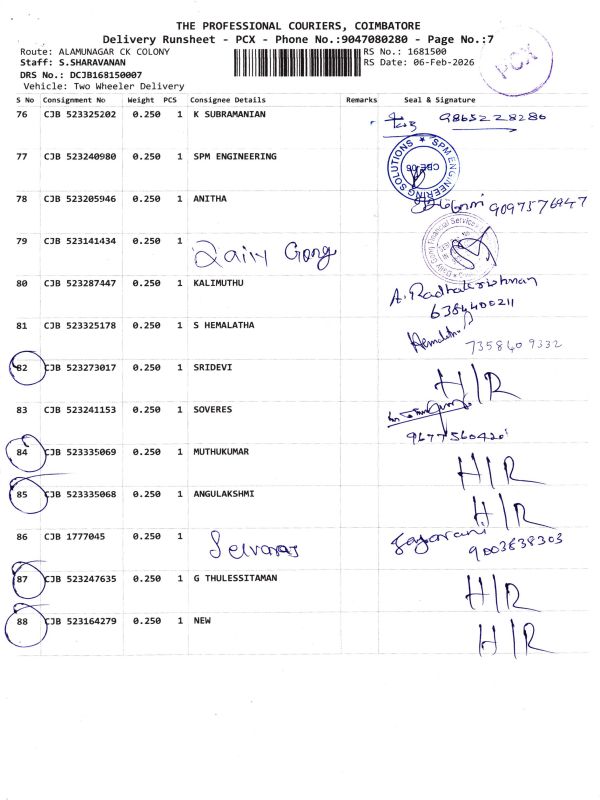 THE PROFESSIONAL COURIERS, COIMBATORE
Delivery Runsheet - PCX - Phone No.:9047080280 - Page No.:7
PCX
Route: ALAMUNAGAR CK COLONY
RS No.: 1681500
Staff: S.SHARAVANAN
RS Date: 06-Feb-2026
DRS No.: DCJB168150007
Vehicle: Two Wheeler Delivery
S No Consignment No Weight PCS Consignee Details Remarks Seal & Signature
76 CJB 523325202 0.250 1 K SUBRAMANIAN 9865228286
77 CJB 523240980 0.250 1 SPM ENGINEERING
SPM ENGINEERING SOLUTIONS ★ CBE-06
78 CJB 523205946 0.250 1 ANITHA 9097576947
79 CJB 523141434 0.250 1
80 CJB 523287447 0.250 1 KALIMUTHU A. Radhakrishnan
6384400211
81 CJB 523325178 0.250 1 S HEMALATHA Hemalatha
7358409332
82 CJB 523273017 0.250 1 SRIDEVI H/R
83 CJB 523241153 0.250 1 SOVERES
9677560420
84 CJB 523335069 0.250 1 MUTHUKUMAR H/R
85 CJB 523335068 0.250 1 ANGULAKSHMI H/R
86 CJB 1777045 0.250 1 Selvaraj
9003638303
87 CJB 523247635 0.250 1 G THULESSITAMAN H/R
88 CJB 523164279 0.250 1 NEW H/R